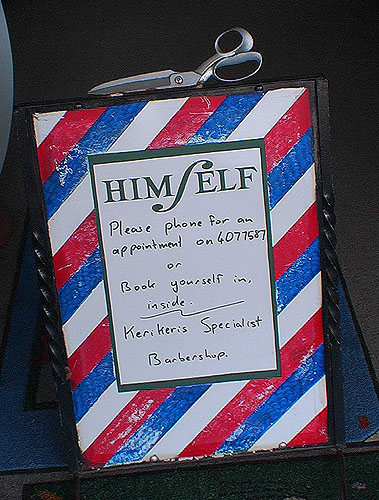 HIMSELF
Please phone for an
appointment on 4077587
or
Book yourself in,
inside.
Kerikeris Specialist
Barbershop.